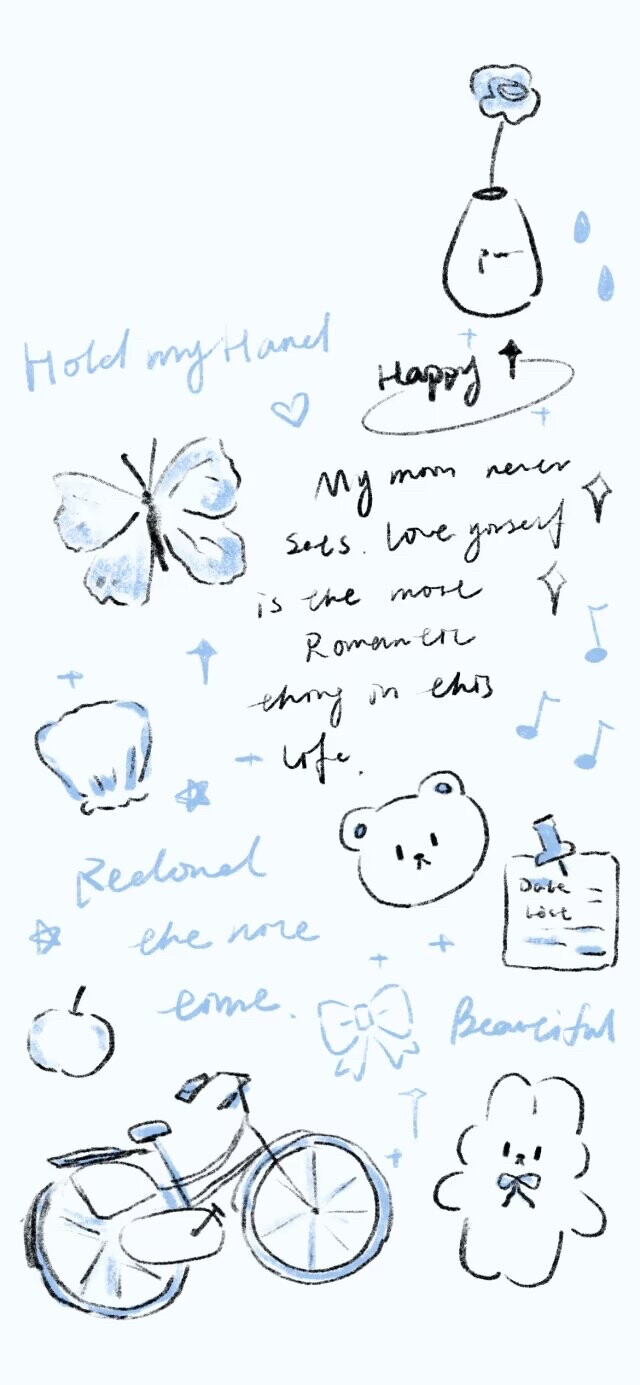 Hold my Hand
Happy
My moon never
sets. Love yourself
is the most
Romantic
thing in this
Life.
the more
come.
Date
List
Beautiful